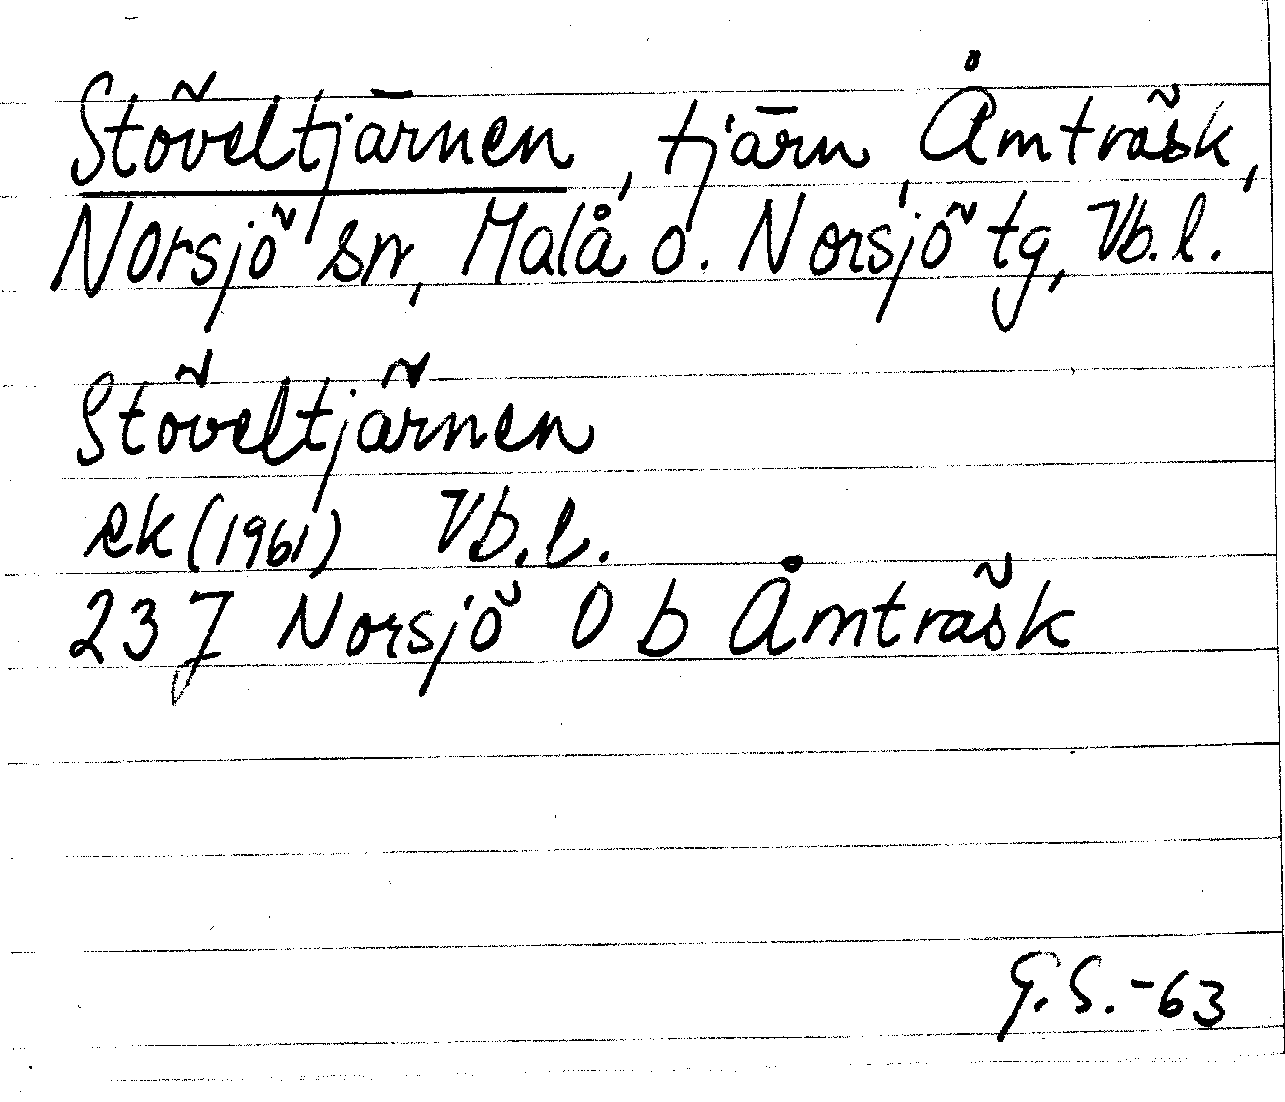 Stöveltjärnen, tjärn, Åmträsk,
Norsjö sn, Malå o. Norsjö tg, Vb. l.
Stöveltjärnen
ek (1961) Vb. l.
23 J Norsjö 0 b Åmträsk
G.S.-63